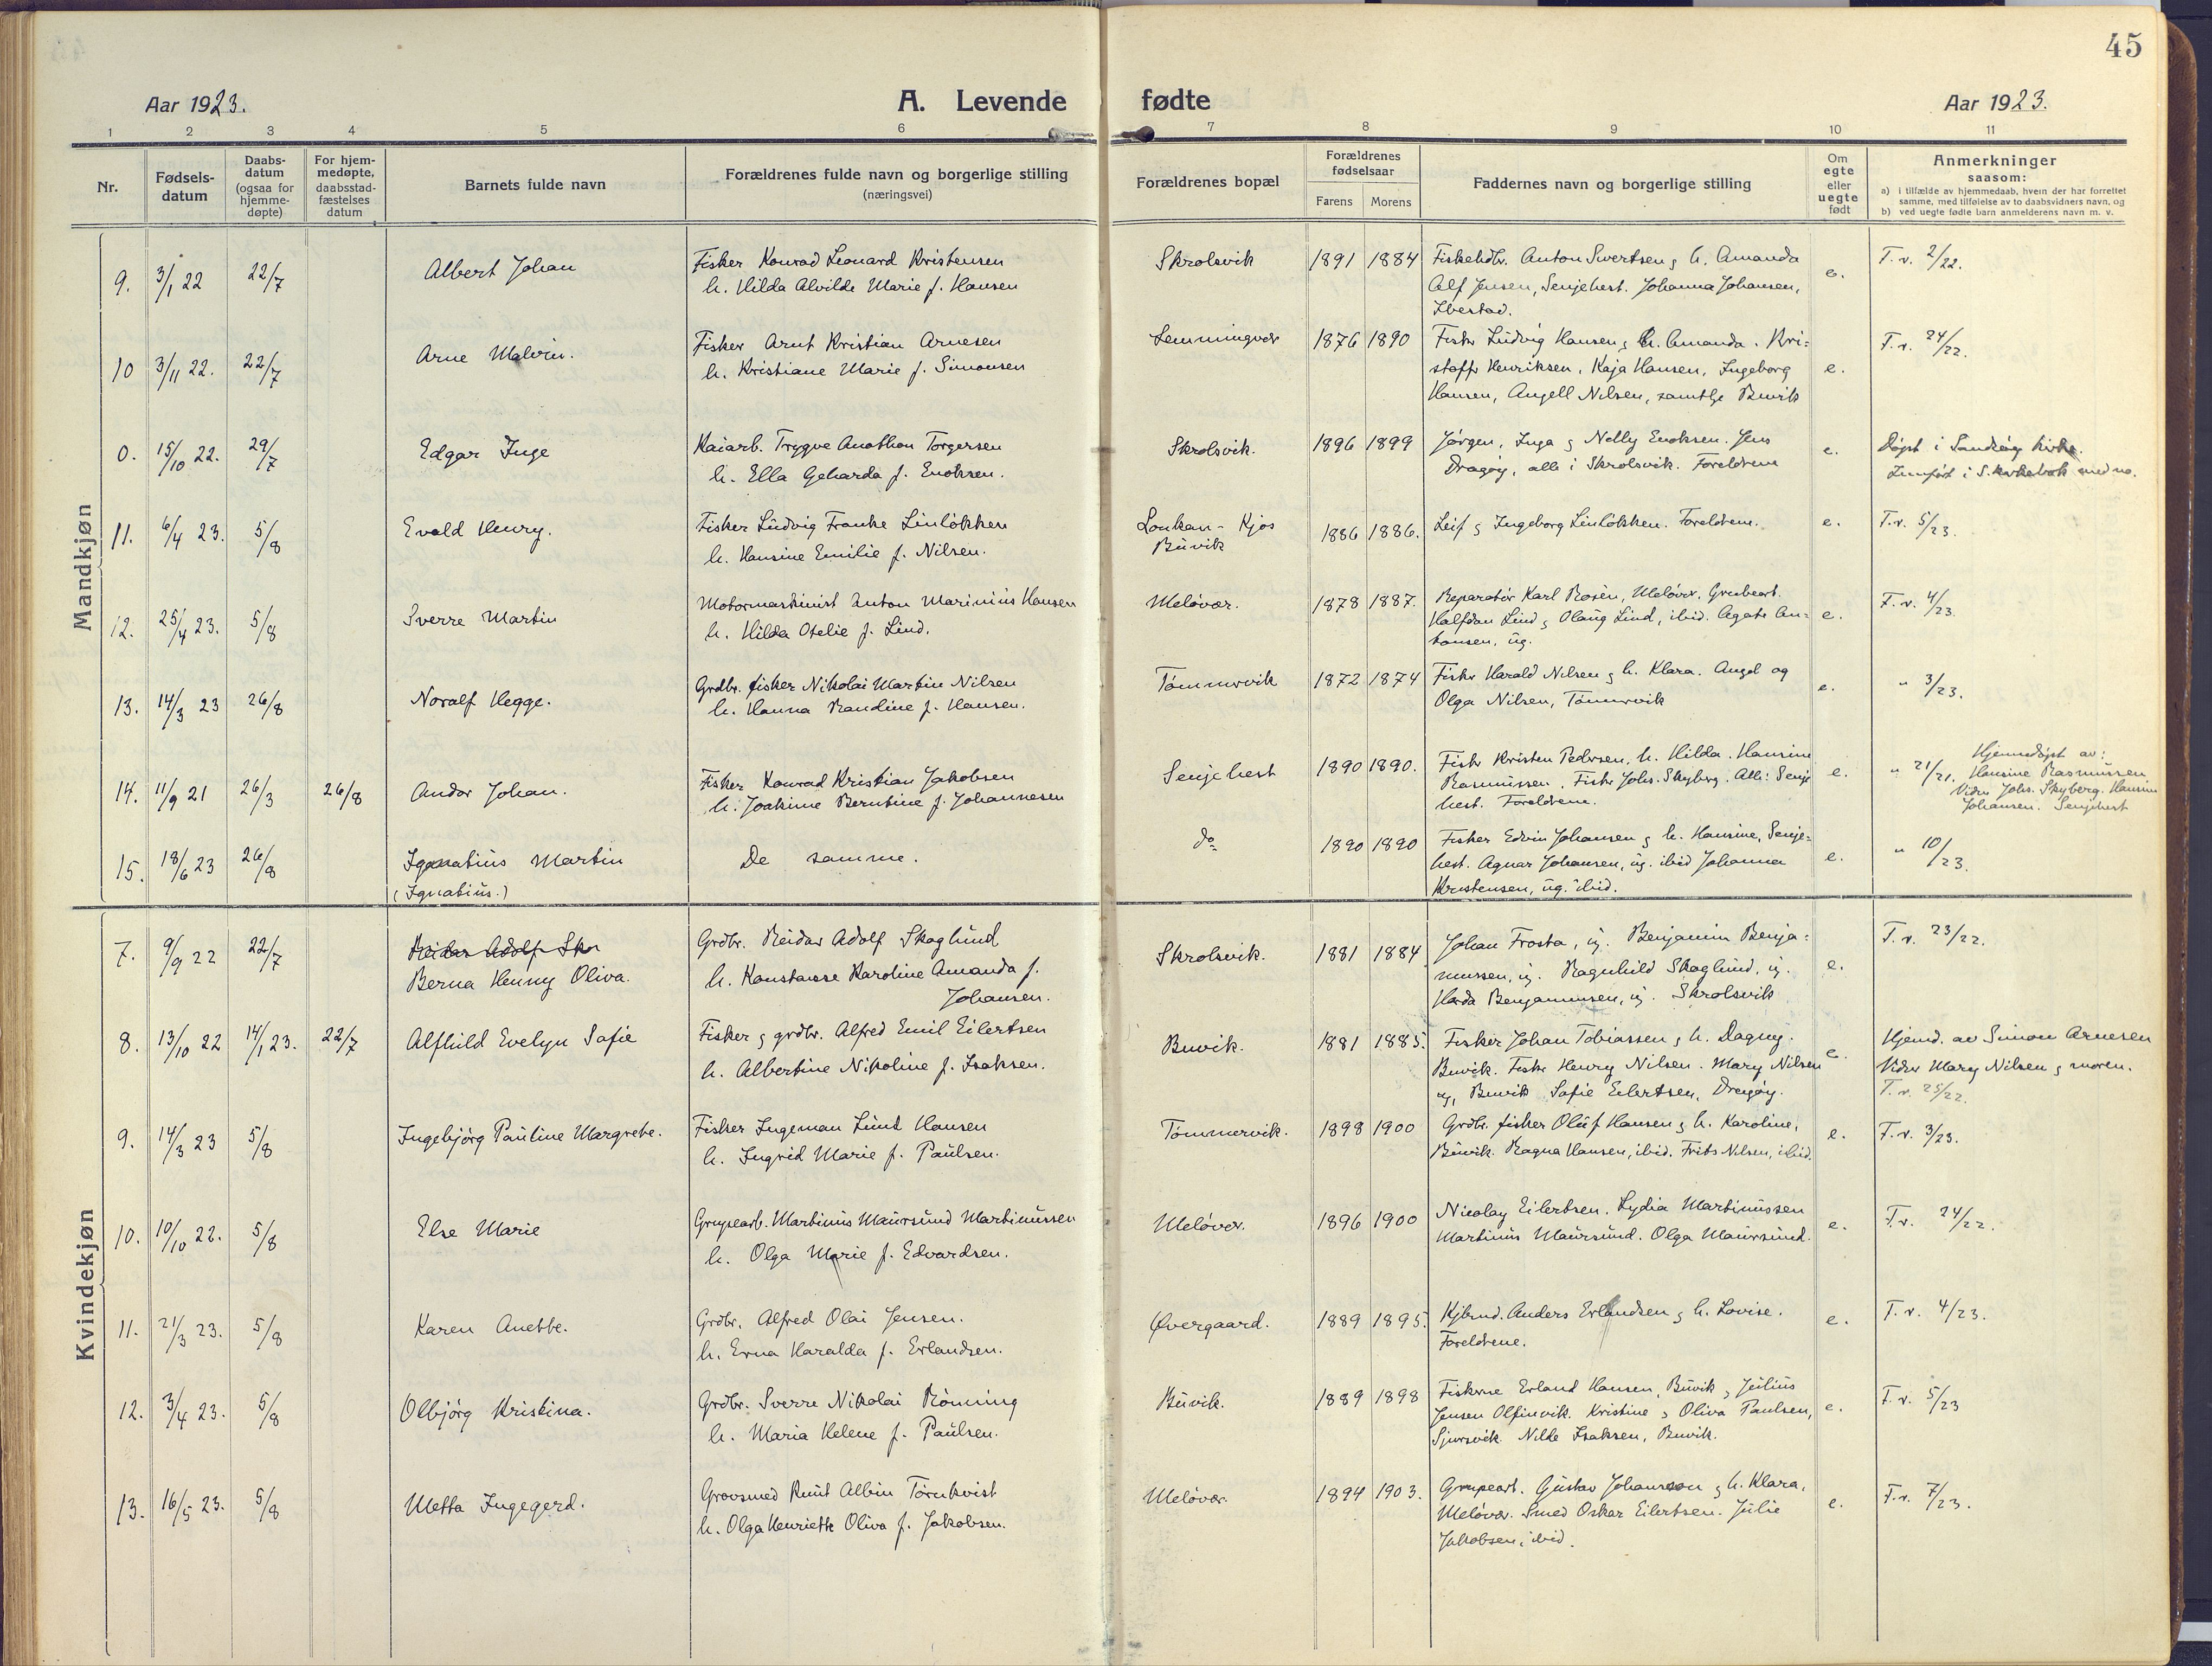 45
Aar 1923.
A. Levende fødte
Aar 1923.
1 2 3 4 5 6 7 8 9 10 11
Nr.
Fødsels-
datum
Daabs-
datum
(ogsaa for
hjemme-
døpte)
For hjem-
medøpte,
daabsstad-
fæstelses
datum
Barnets fulde navn
Forældrenes fulde navn og borgerlige stilling
(næringsvei)
Forældrenes bopæl
Forældrenes
fødselsaar
Farens Morens
Faddernes navn og borgerlige stilling
Om
egte
eller
uegte
født
Anmerkninger
saasom:
a) i tilfælde av hjemmedaab, hvem der har forrettet
samme, med tilføielse av to daabsvidners navn, og
b) ved uegte fødte barn anmelderens navn m. v.
Mandkjøn
9. 3/1 22 22/7 Albert Johan
Fisker Konrad Leonard Kristensen
h. Hilda Alvilde Marie f. Hansen
Skrolsvik 1891 1884
Fiskehdlr. Anton Sivertsen & h. Amanda
Alf Jensen, Senjehest. Johanna Johansen,
Ibestad.
e. T.v. 2/22.
10 3/11 22. 22/7 Arne Malvin.
Fisker Arnt Kristian Arnesen
h. Kristiane Marie f. Simonsen
Lemmingvær 1876 1890
Fiskr Ludvig Hansen & h. Amanda. Kri=
stoffr Henriksen, Kaja Hansen, Ingeborg
Hansen, Angell Nilsen, samtlge Buvik
e. T.v. 24/22.
0. 15/10 22. 29/7 Edgar Inge
Kaiarb. Trygve Anathon Torgersen
h. Ella Geharda f. Enoksen.
Skrolsvik. 1896 1899
Jørgen, Inga & Nelly Enoksen. Jens
Dragøy, alle i Skrolsvik. Foreldrene
e. Døpt i Sandtorg kirke.
Innført i S. kirkebok med no.
11. 6/4 23. 5/8 Evald Henry.
Fisker Ludvig Franke Linløkken
h. Hansine Emilie f. Nilsen.
Kjos
Buvik 1886 1886.
Leif & Ingeborg Linløkken. Foreldrene.
e. T.v. 5/23.
12. 25/4 23. 5/8 Sverre Martin
Motormaskinist Anton Marinius Hansen
h. Hilda Otelie f. Lind.
Meløvær. 1878 1887.
Reparatør Karl Rosen, Meløvær. Grubearb.
Halfdan Lind & Olaug Lind, ibid. Agate An=
tonsen, ug.
e. T.v. 4/23.
13. 14/3 23 26/8 Noralf Hegge.
Grdbr. fisker Nikolai Martin Nilsen
h. Hanna Randine f. Hansen.
Tømmervik 1872 1874
Fiskr Harald Nilsen & h. Klara. Angel og
Olga Nilsen, Tømmervik
e. " 3/23.
14. 11/9 21 26/3 26/8 Andor Johan.
Fisker Konrad Kristian Jakobsen
h. Joakime Berntine f. Johannesen
Senjehest 1890 1890.
Fiskr Kristen Pedersen, h. Hilda. Hansine
Rasmussen. Fiskr Johs. Skyberg. Alle: Senje
hest. Foreldrene.
e. " 21/21.
Hjemmedøpt av:
Hansine Rasmussen
Vidner Johs. Skyberg. Hansine
Johansen. Senjehest
15. 18/6 23 26/8 Iganatius Martin
(Ignatius.)
De samme.
do 1890 1890
Fisker Edvin Johansen & h. Hansine, Senje=
hest. Agnar Johansen, ug. ibid Johanna
Kristensen, ug. ibid.
e. " 10/23.
Kvindekjøn
7. 9/9 22 22/7 Reidar Adolf Skog
Berna Henny Oliva.
Grdbr. Reidar Adolf Skoglund
h. Konstanse Karoline Amanda f.
Johansen.
Skrolsvik. 1881 1884
Johan Frosta, ug. Benjamin Benja=
minsen, ug. Ragnhild Skoglund, ug.
Harda Benjaminsen, ug. Skrolsvik
e. T.v. 23/22.
8. 13/10 22 14/1 23. 22/7 Alfhild Evelyn Sofie
Fisker & grdbr. Alfred Emil Eilertsen
h. Albertine Nikoline f. Isaksen.
Buvik. 1881 1885.
Fisker Johan Tobiassen & h. Dagny.
Buvik. Fiskr Henry Nilsen. Mary Nilsen
ug, Buvik Sofie Eilertsen, Dragøy.
e. Hjemd. av Simon Arnesen
Vidner Mary Nilsen & moren.
T.v. 25/22.
9. 14/3 23 5/8 Ingebjörg Pauline Margrete.
Fisker Ingeman Lund Hansen
h. Ingrid Marie f. Paulsen.
Tømmervik. 1898 1900
Grdbr. fisker Oluf Hansen & h. Karoline,
Buvik. Ragna Hansen, ibid. Frits Nilsen, ibid.
e. T.v. 3/23.
10. 10/10 22. 5/8 Else Marie
Grupearb. Martinus Maursund Martinussen
h. Olga Marie f. Edvardsen.
Meløvær. 1896 1900
Nicolay Eilertsen. Lydia Martinussen
Martinus Maursund. Olga Maursund.
e. T.v. 24/22.
11. 21/3 23. 5/8 Karen Anette.
Grdbr. Alfred Olai Jensen.
h. Erna Haralda f. Erlandsen.
Øvergaard. 1889 1895.
Kjbmd. Anders Erlandsen & h. Lovise.
Foreldrene.
e. T.v. 4/23.
12. 3/4 23. 5/8 Olbjörg Kristina.
Grdbr. Sverre Nikolai Rønning
h. Maria Helene f. Paulsen.
Buvik. 1889 1898
Fiskerne Erland Hansen, Buvik & Julius
Jensen Olfinvik. Kristine & Oliva Paulsen,
Sjursvik. Nilde Isaksen, Buvik.
e. T.v. 5/23
13. 16/5 23. 5/8 Metta Ingegerd.
Grovsmed Knut Albin Törnkvist
h. Olga Henriette Oliva f. Jakobsen.
Meløvær. 1894 1903.
Grupearb. Gustav Johansson & h. Klara,
Meløvær. Smed Oskar Eilertsen. Julie
Jakobsen, ibid.
e. T.v. 7/23.